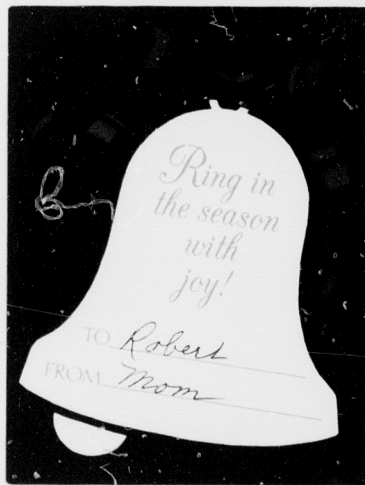 Ring in
the season
with
joy!
TO Robert
FROM Mom